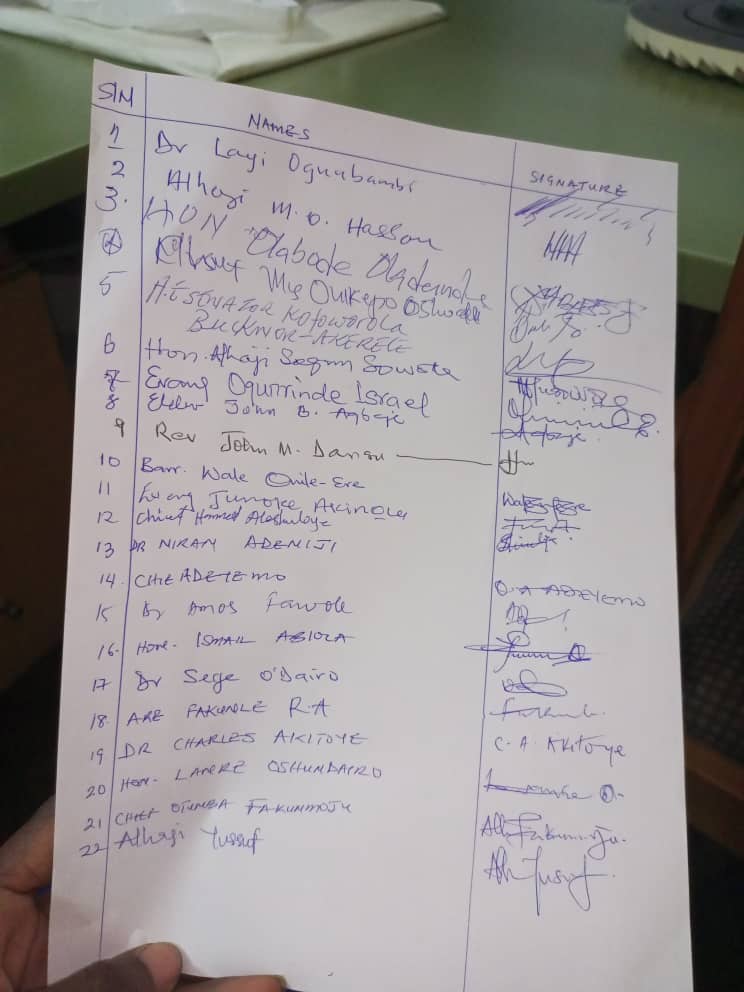 S/N NAMES SIGNATURE
1 Dr Layi Ogunbambi
2 Alhaji M. O. Hassan
3. HON Olabode Oladeinde
4 Mrs Onikepo Oshodi
5 H.E SENATOR KOFOWOROLA
BUCKNOR-AKERELE
6 Hon. Alhaji Segun Sowota
7 Evang Ogunrinde Israel
8 Elder John B. Agboje
9 Rev John M. Dansu
10 Barr. Wale Onile-Ere
11 Evang Junoke Akinola
12 Chief
13 DR NIRAN ADENIJI
14. CHIE ADEYEMO O. A ADEYEMO
15 Dr Amos Fawole
16. Hon. ISMAIL ABIOLA
17 Dr Sege O'Dairo
18. ARE FAKUNLE R.A
19 DR CHARLES AKITOYE C. A. Akitoye
20 Hon. LANRE OSHUNDAIRO
21 CHIEF OTUNBA FAKUNMOJU
22 Alhaji Yussuf Alh Yusuf